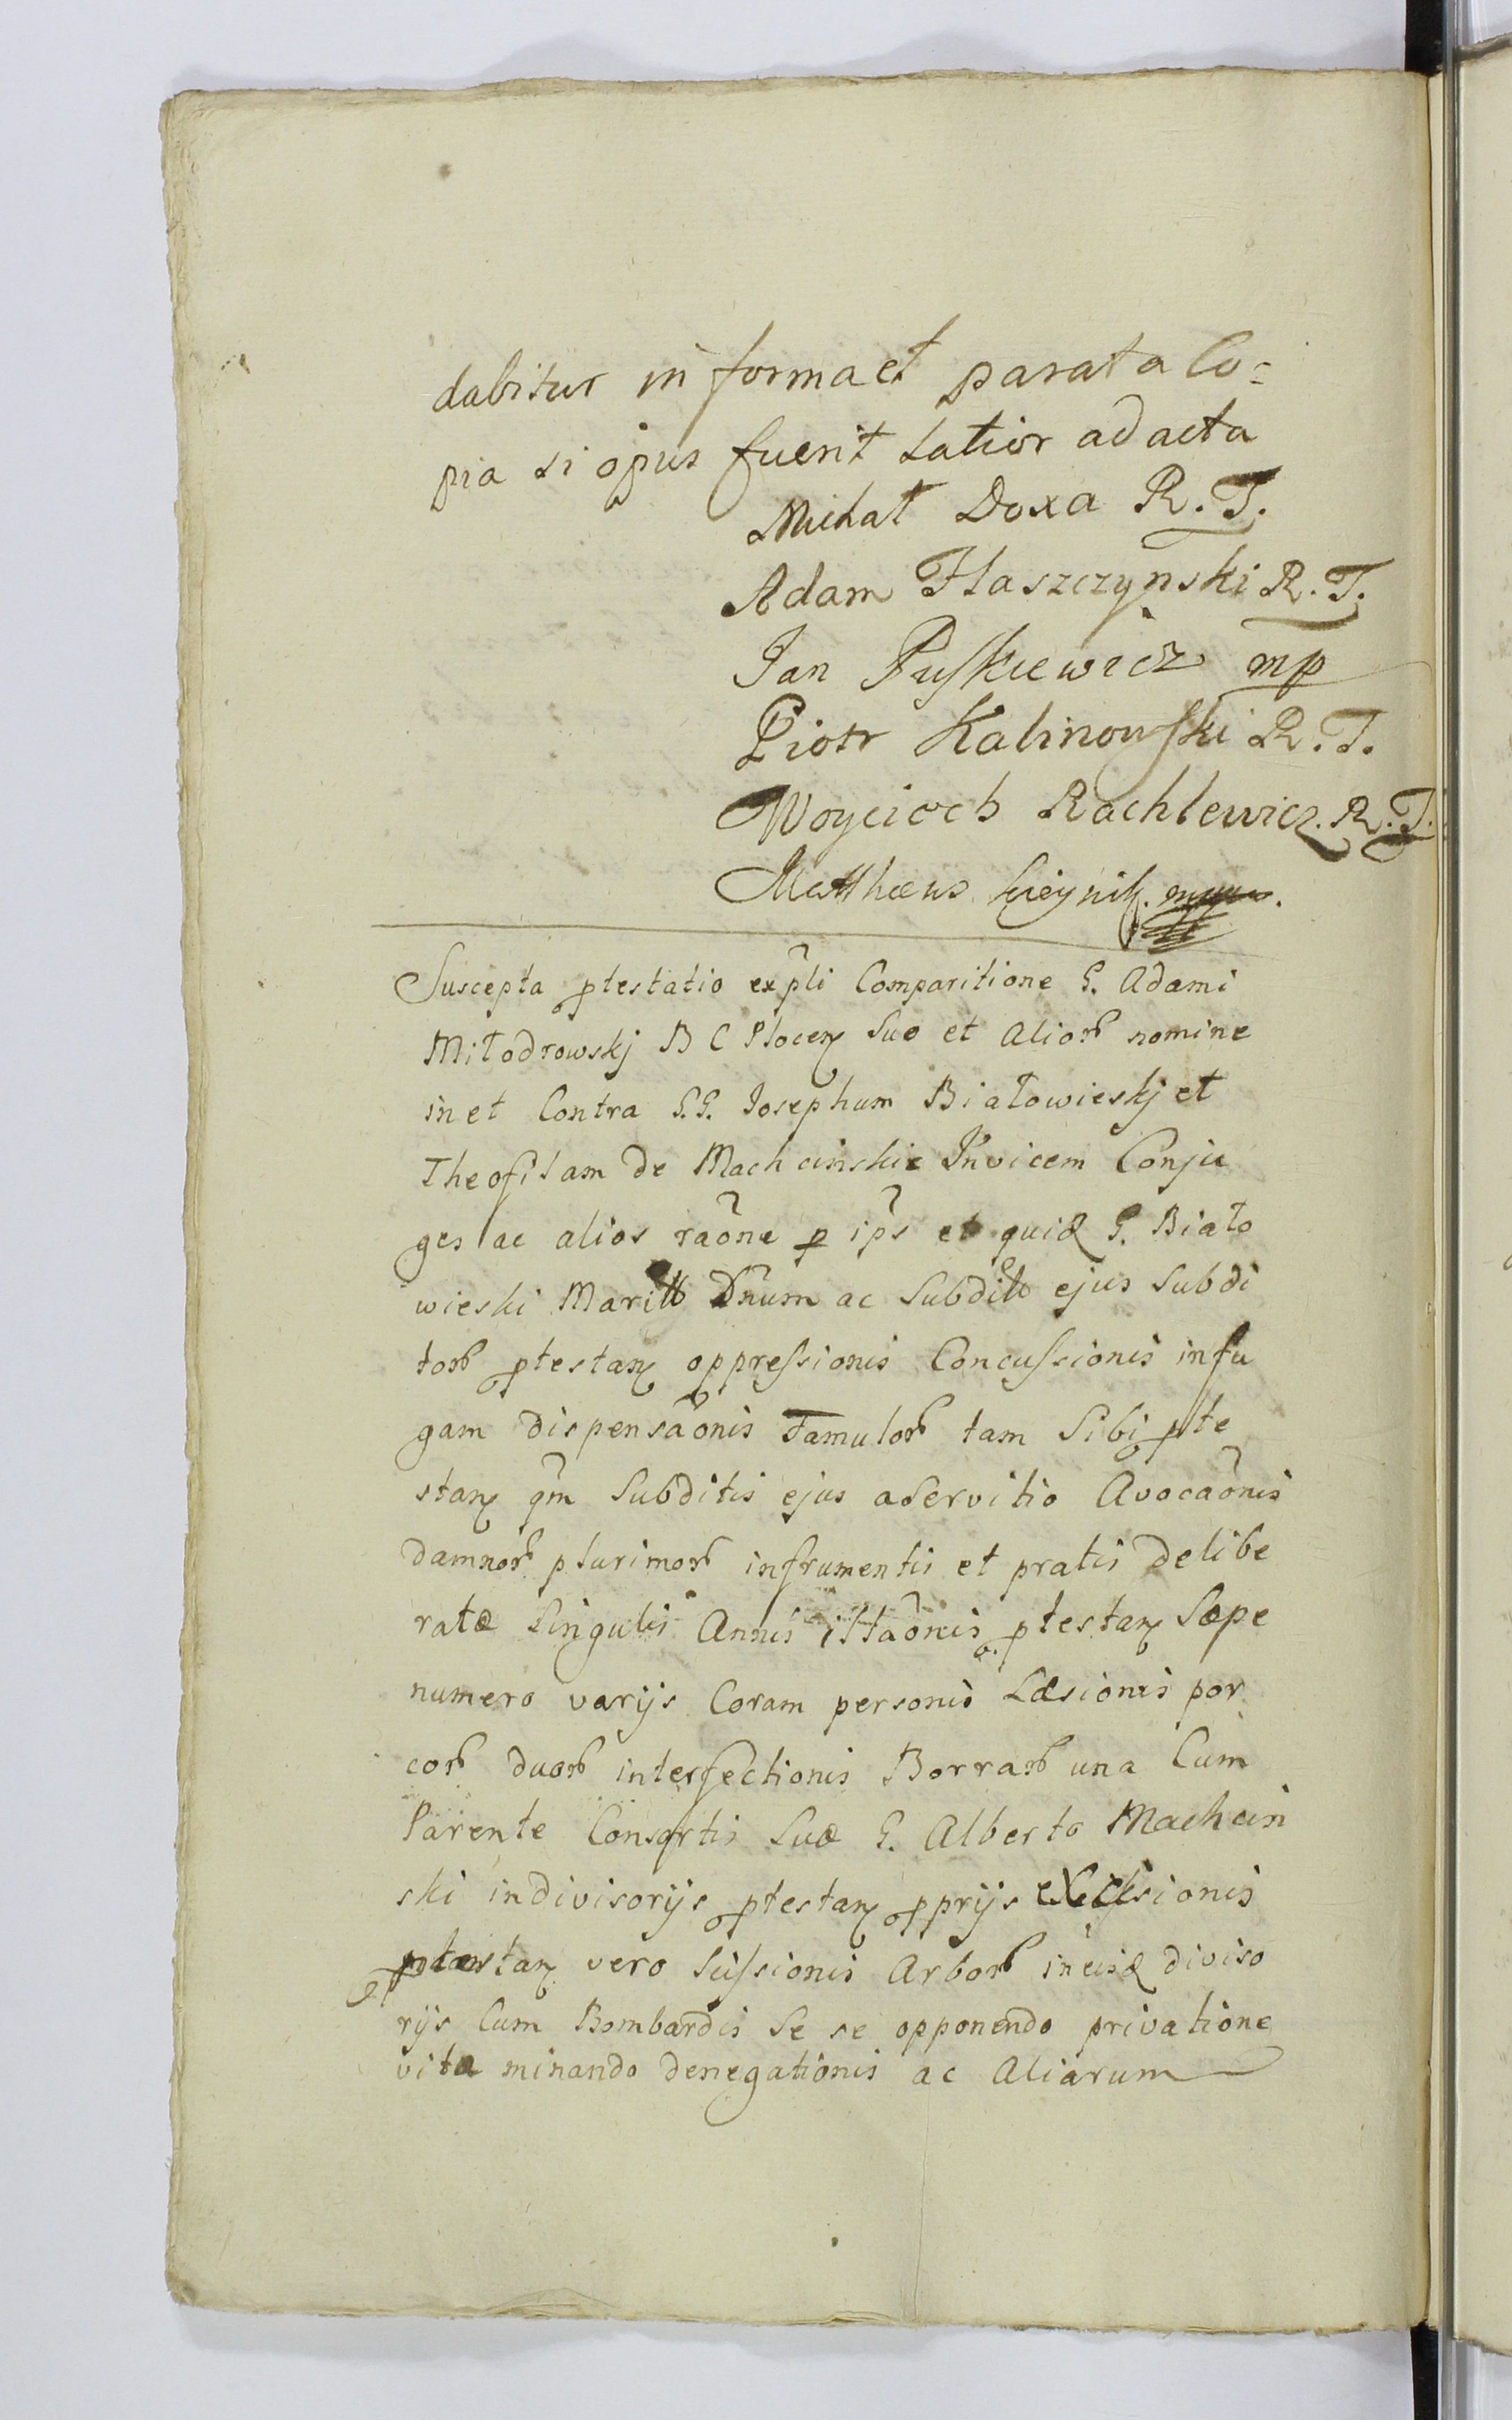 dabitur in forma et parata Co=
pia si opus fuerit latior ad acta
Michał Doxa R. T.
Adam Haszczynski R. T.
Jan Puſkiewicz mp
Piotr Kalinowſki R. T.
Woyciech Rachlewicz. R. T.
Matthæus mp.
Suscepta ꝓtestatio ex pli Comparitione G. Adami
Miłodrowskj B C Plocen Suo et Alioꝝ nomine
in et Contra G.G. Josephum Białowieskj et
Theofilam de Machcinskie Invicem Conju
ges ac alios raõne ꝑ ip̃s et quidꝫ G. Biało
wieski Marittũ Dnũm ac Subditũ ejus Subdi
toꝝ ꝓtestan oppreſsionis Concuſsionis in fu
gam dispensaõnis Famuloꝝ tam Sibi ꝓte
stan qm̃ Subditis ejus a Servitio Avocaõnis
damnoꝝ plurimoꝝ in frumentis et pratis delibe
ratæ Singulis Annis illaõnis ꝓtestan Sæpe
numero varijs Coram personis Læsionis por
coꝝ duoꝝ interfectionis Borraꝝ una Cum
Parente Consortis Suæ G. Alberto Machcin
ski in divisorijs ꝓtestan ꝓprijs exciſsionis
ꝓtestan vero Sciſsionis Arboꝝ in eisdꝫ diviso
rijs Cum Bombardis Se se opponendo privatione
vitæ minando denegationis ac Aliarum